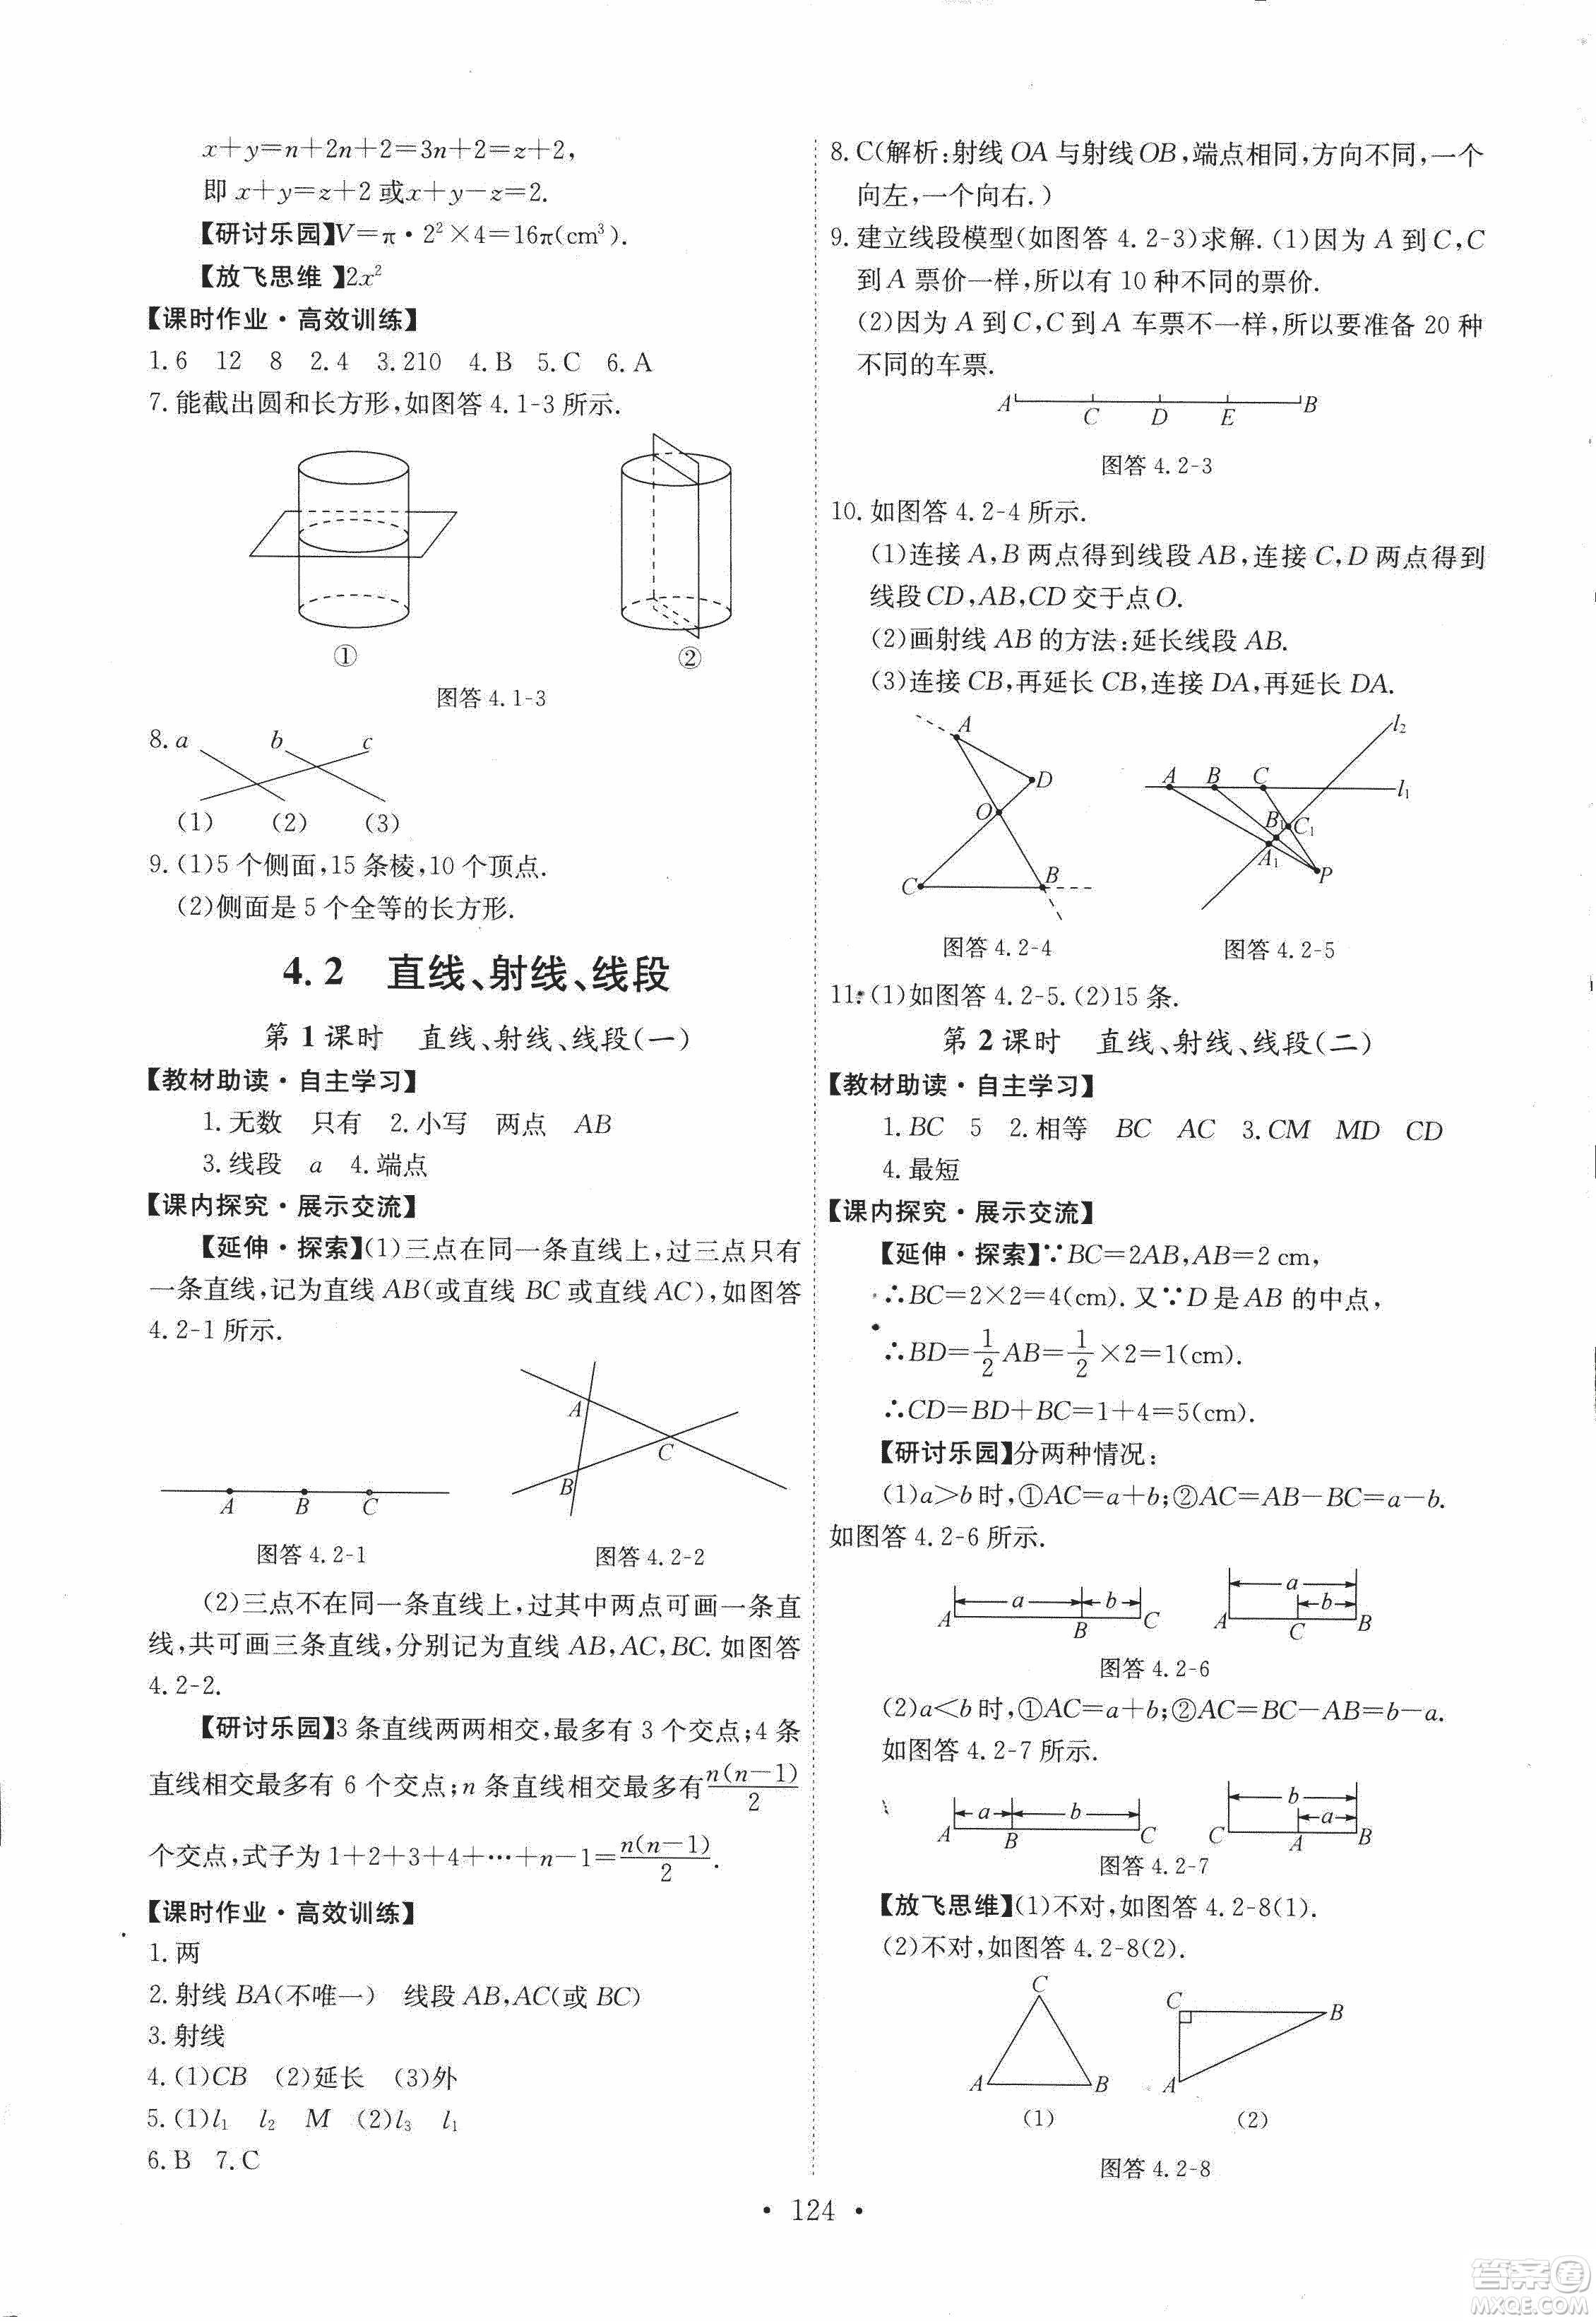 x+y=n+2n+2=3n+2=z+2,
即 x+y=z+2 或x+y-z=2.
【研讨乐园】V=π·2²×4=16π(cm³).
【放飞思维 】2x²
【课时作业·高效训练】
1.6 12 8 2.4 3.210 4.B 5.C 6.A
7.能截出圆和长方形,如图答4.1-3所示.
① ②
图答4.1-3
8.a b c
(1) (2) (3)
9.(1)5个侧面,15条棱,10个顶点.
(2)侧面是5个全等的长方形.
4.2 直线、射线、线段
第1课时 直线、射线、线段(一)
【教材助读·自主学习】
1.无数 只有 2.小写 两点 AB
3.线段 a 4.端点
【课内探究·展示交流】
【延伸·探索】(1)三点在同一条直线上,过三点只有
一条直线,记为直线AB(或直线BC或直线AC),如图答
4.2-1所示.
A B C
A B C
图答4.2-1 图答4.2-2
(2)三点不在同一条直线上,过其中两点可画一条直
线,共可画三条直线,分别记为直线AB,AC,BC.如图答
4.2-2.
【研讨乐园】3条直线两两相交,最多有3个交点;4条
直线相交最多有6个交点;n条直线相交最多有n(n-1)/2
个交点,式子为1+2+3+4+…+n-1=n(n-1)/2.
【课时作业·高效训练】
1.两
2.射线BA(不唯一) 线段AB,AC(或BC)
3.射线
4.(1)CB (2)延长 (3)外
5.(1)l₁ l₂ M (2)l₃ l₁
6.B 7.C
8.C(解析:射线OA与射线OB,端点相同,方向不同,一个
向左,一个向右.)
9.建立线段模型(如图答4.2-3)求解.(1)因为A到C,C
到A票价一样,所以有10种不同的票价.
(2)因为A到C,C到A车票不一样,所以要准备20种
不同的车票.
A C D E B
图答4.2-3
10.如图答4.2-4所示.
(1)连接A,B两点得到线段AB,连接C,D两点得到
线段CD,AB,CD交于点O.
(2)画射线AB的方法:延长线段AB.
(3)连接CB,再延长CB,连接DA,再延长DA.
A D O C B
l₂ A B C l₁ B₁ C₁ A₁ P
图答4.2-4 图答4.2-5
11.(1)如图答4.2-5.(2)15条.
第2课时 直线、射线、线段(二)
【教材助读·自主学习】
1.BC 5 2.相等 BC AC 3.CM MD CD
4.最短
【课内探究·展示交流】
【延伸·探索】∵BC=2AB,AB=2 cm,
∴BC=2×2=4(cm).又∵D是AB的中点,
∴BD=1/2AB=1/2×2=1(cm).
∴CD=BD+BC=1+4=5(cm).
【研讨乐园】分两种情况:
(1)a>b时,①AC=a+b;②AC=AB-BC=a-b.
如图答4.2-6所示.
a b A B C
a b A C B
图答4.2-6
(2)a<b时,①AC=a+b;②AC=BC-AB=b-a.
如图答4.2-7所示.
a b A B C
b a C A B
图答4.2-7
【放飞思维】(1)不对,如图答4.2-8(1).
(2)不对,如图答4.2-8(2).
C A B
C B A
(1) (2)
图答4.2-8
· 124 ·
答案圈
MXQE.COM